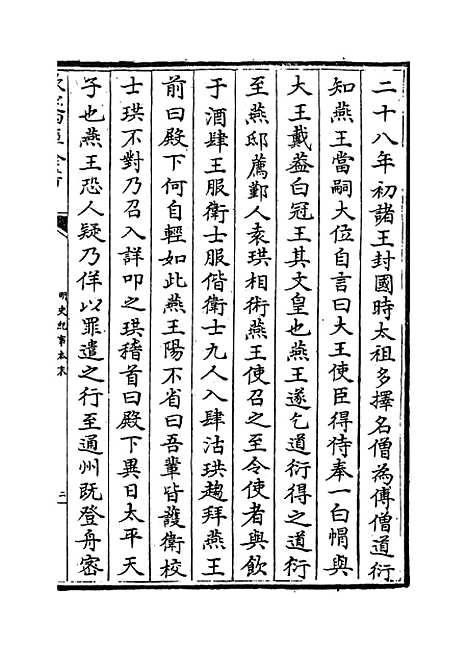 二十八年初諸王封國時太祖多擇名僧為傅僧道衍
知燕王當嗣大位自言曰大王使臣得侍奉一白㡌與
大王戴葢白冠王其文皇也燕王遂乞道衍得之道衍
至燕邸薦鄞人袁珙相術燕王使召之至令使者與飲
于酒肆王服衛士服偕衛士九人入肆沽珙趨拜燕王
前曰殿下何自輕如此燕王陽不省曰吾輩皆護衛校
士珙不對乃召入詳叩之珙稽首曰殿下異日太平天
子也燕王恐人疑乃佯以罪遣之行至通州既登舟密
明史紀事本末
二